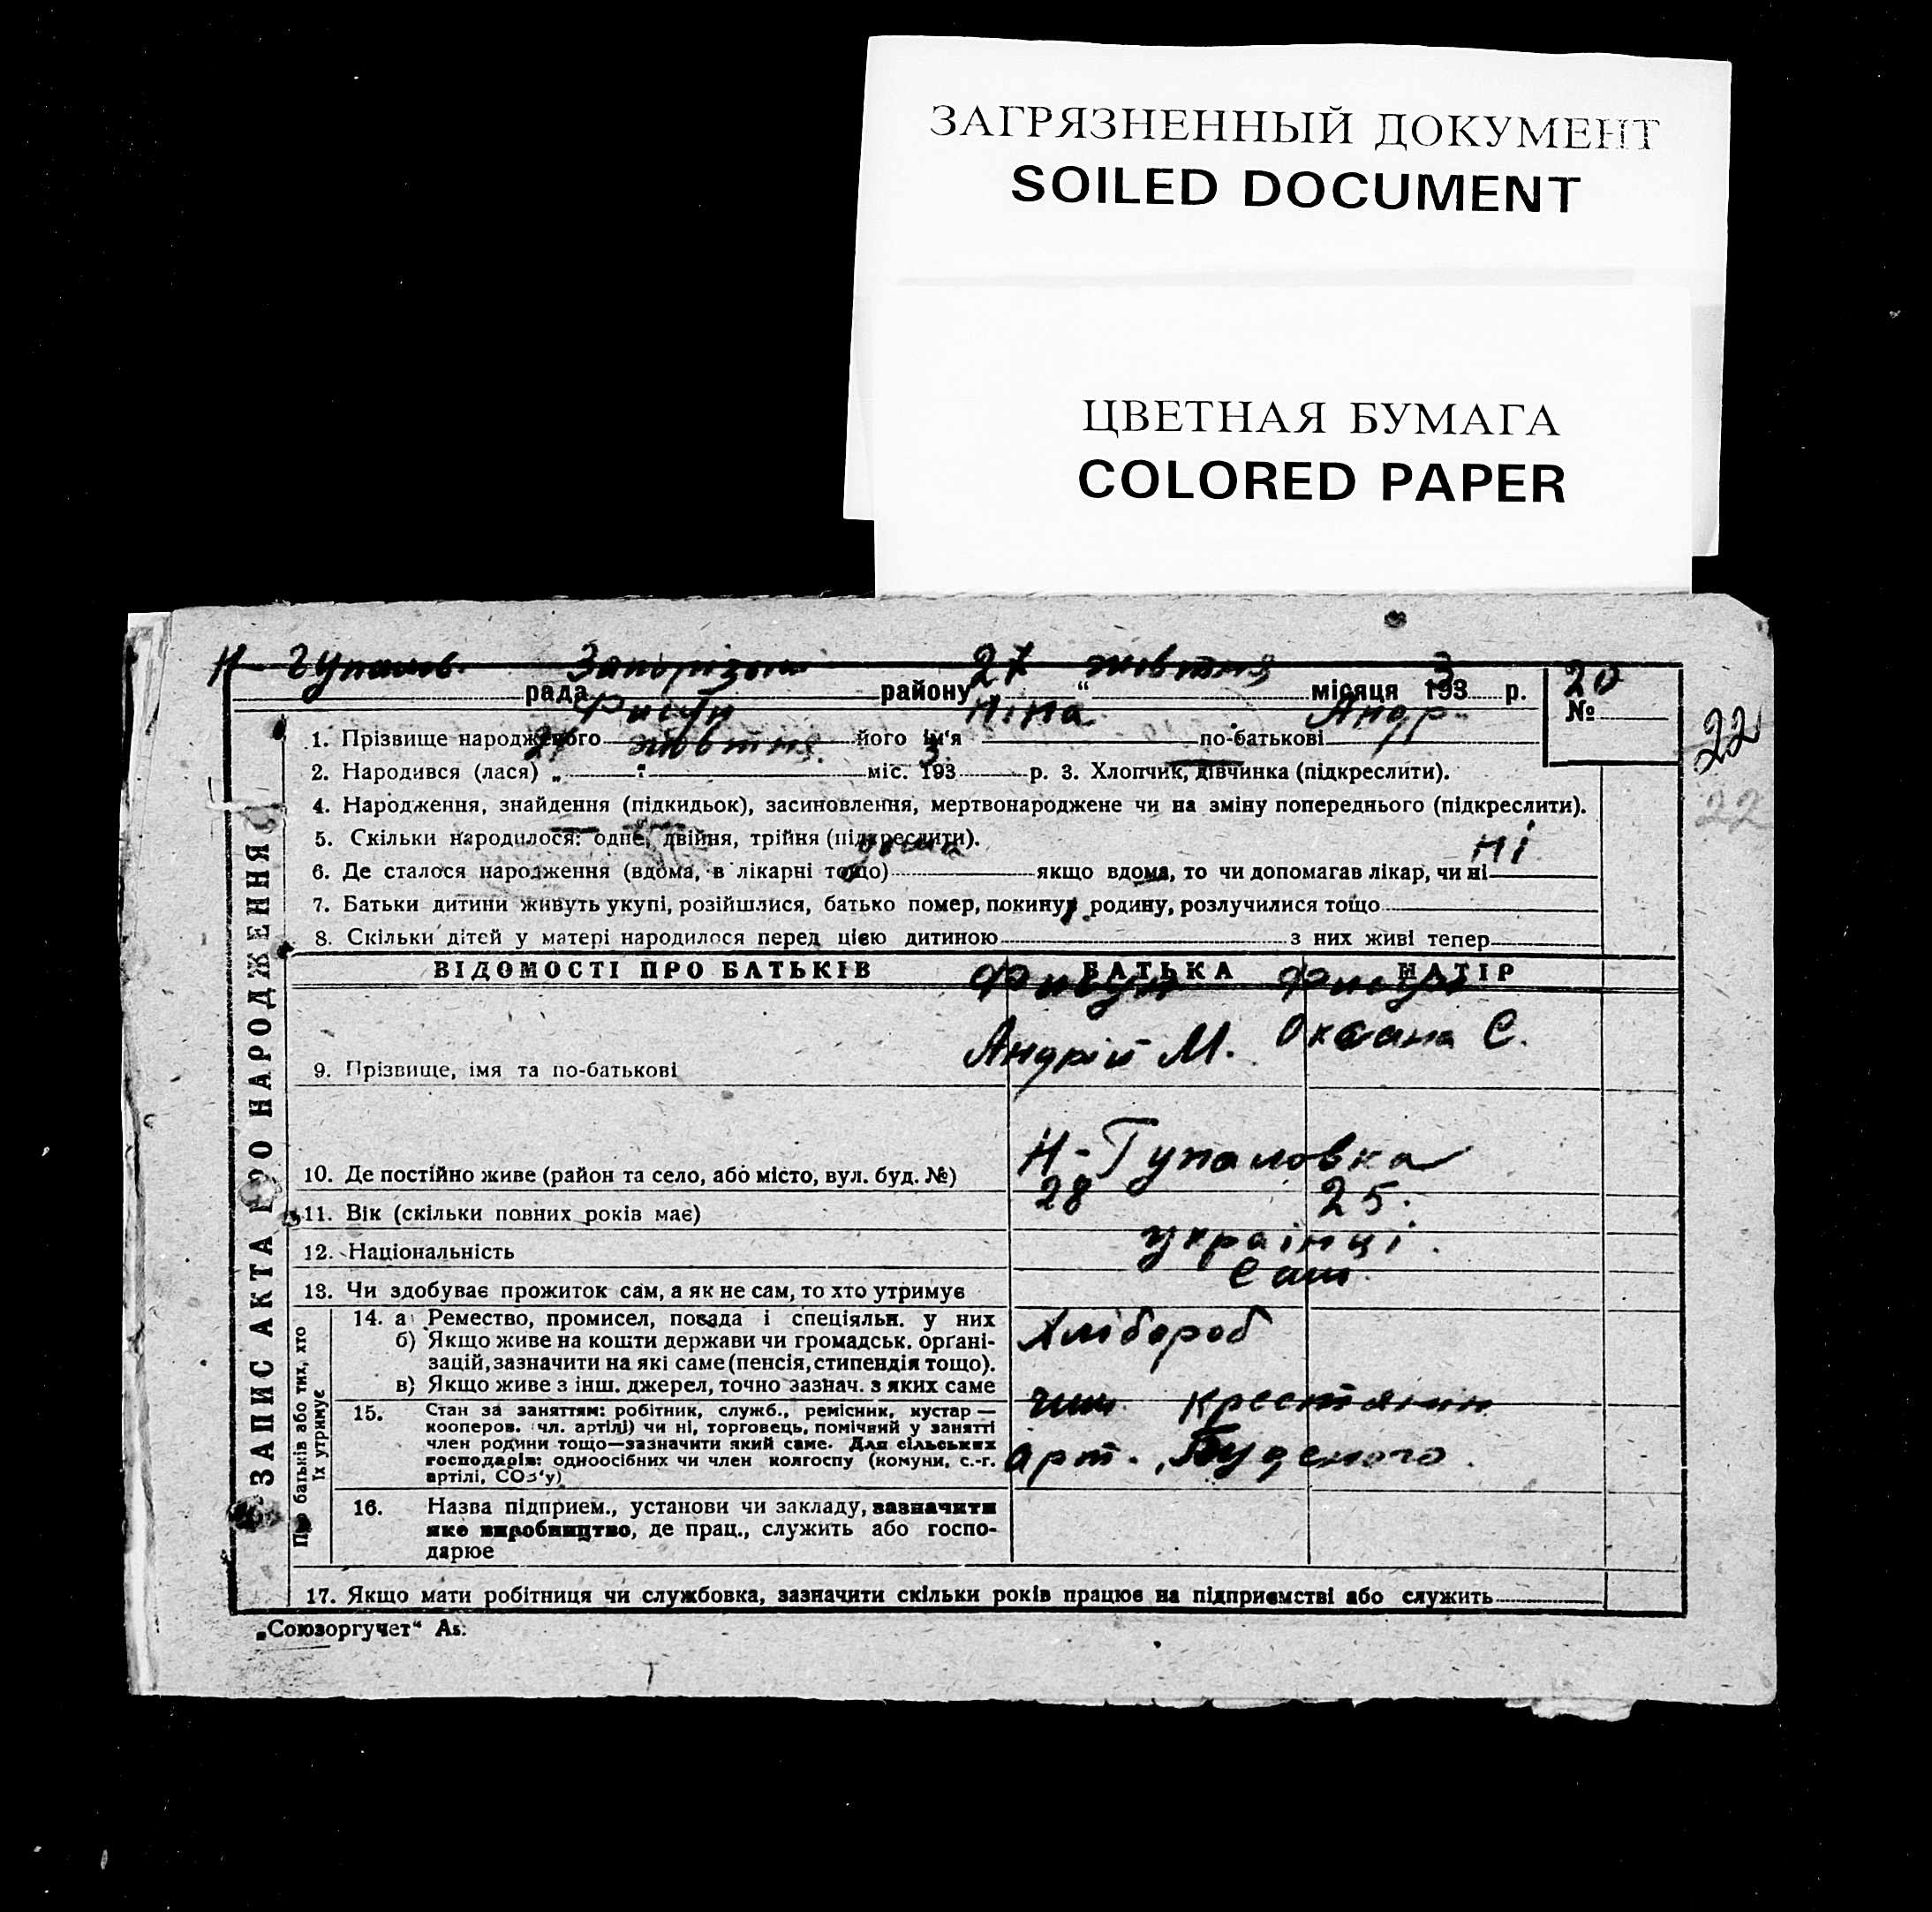 ЗАГРЯЗНЕННЫЙ ДОКУМЕНТ
SOILED DOCUMENT
ЦВЕТНАЯ БУМАГА
COLORED PAPER
Н-Гупалов. рада Запорізьк району „27“ жовтня місяця 1933 р. № 20
22
22
1. Прізвище народженого Фисун його ім'я Ніна по-батькові Андр.
2. Народився (лася) „ “ жовтня міс. 1933 р. 3. Хлопчик, дівчинка (підкреслити).
4. Народження, знайдення (підкидьок), засиновлення, мертвонароджене чи на зміну попереднього (підкреслити).
5. Скільки народилося: одне, двійня, трійня (підкреслити).
6. Де сталося народження (вдома, в лікарні тощо) дома якщо вдома, то чи допомагав лікар, чи ні ні
7. Батьки дитини живуть укупі, розійшлися, батько помер, покинув родину, розлучилися тощо
8. Скільки дітей у матері народилося перед цією дитиною з них живі тепер
ЗАПИС АКТА ПРО НАРОДЖЕННЯ
ВІДОМОСТІ ПРО БАТЬКІВ БАТЬКА МАТІР
Фисун Фисун
Андрій М. Оксана Є.
9. Прізвище, імя та по-батькові
Н-Гупаловка
10. Де постійно живе (район та село, або місто, вул. буд. №)
11. Вік (скільки повних років має) 28 25.
12. Національність українці.
13. Чи здобуває прожиток сам, а як не сам, то хто утримує
Про батьків або тих, хто їх утримує
14. а) Ремество, промисел, посада і спеціяльн. у них
б) Якщо живе на кошти держави чи громадськ. органі- Хлібороб
зацій, зазначити на які саме (пенсія, стипендія тощо).
в) Якщо живе з інш. джерел,точно зазнач. з яких саме
15. Стан за заняттям: робітник, служб., ремісник, кустар — крестянин
кооперов. чл. артілі) чи ні, торговець, помічний у занятті
член родини тощо—зазначити який саме. Для сільських
господарів: одноосібних чи член колгоспу (комуни, с.-г. арт. Буденого.
артілі, СОЗ'у)
16. Назва підприєм., установи чи закладу, зазначити
яке виробництво, де прац., служить або госпо-
дарює
17. Якщо мати робітниця чи службовка, зазначити скільки років працює на підприємстві або служить
„Союзоргучет“